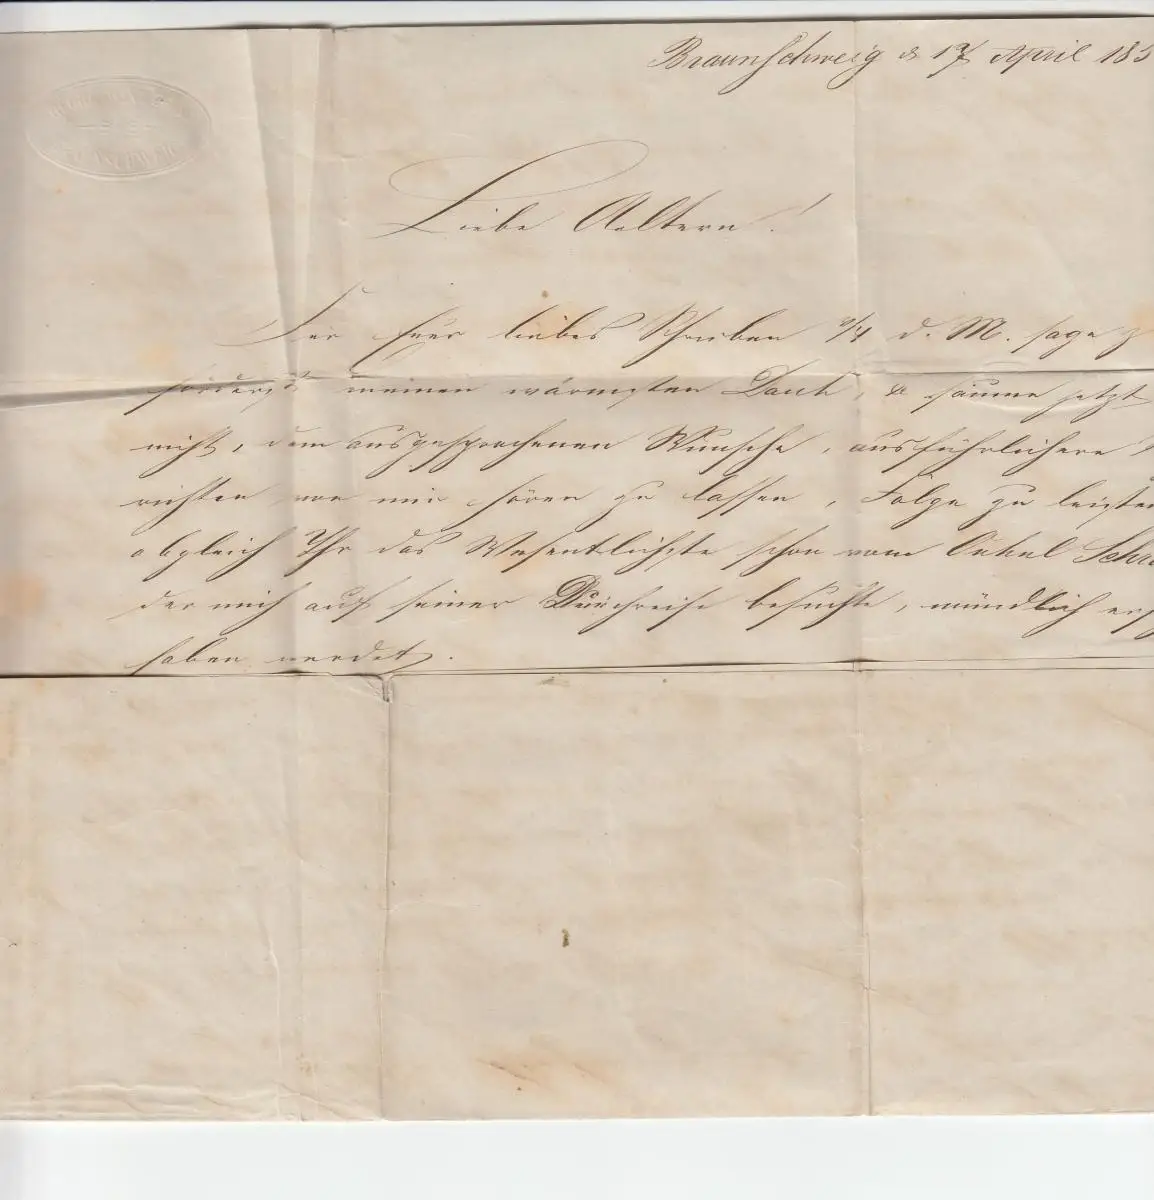 Braunschweig d 17 April 185
Liebe Aeltern!
Für Euer liebes Schreiben d. M. sage
förderst meinen wärmsten Dank, & säume jetzt
nicht, dem ausgesprochenen Wunsche, ausführlichere
richten von mir hören zu lassen, Folge zu leisten
obgleich Ihr das Wesentlichste schon vom Onkel Schra
der mich auf seiner Durchreise besuchte, mündlich
haben werdet.